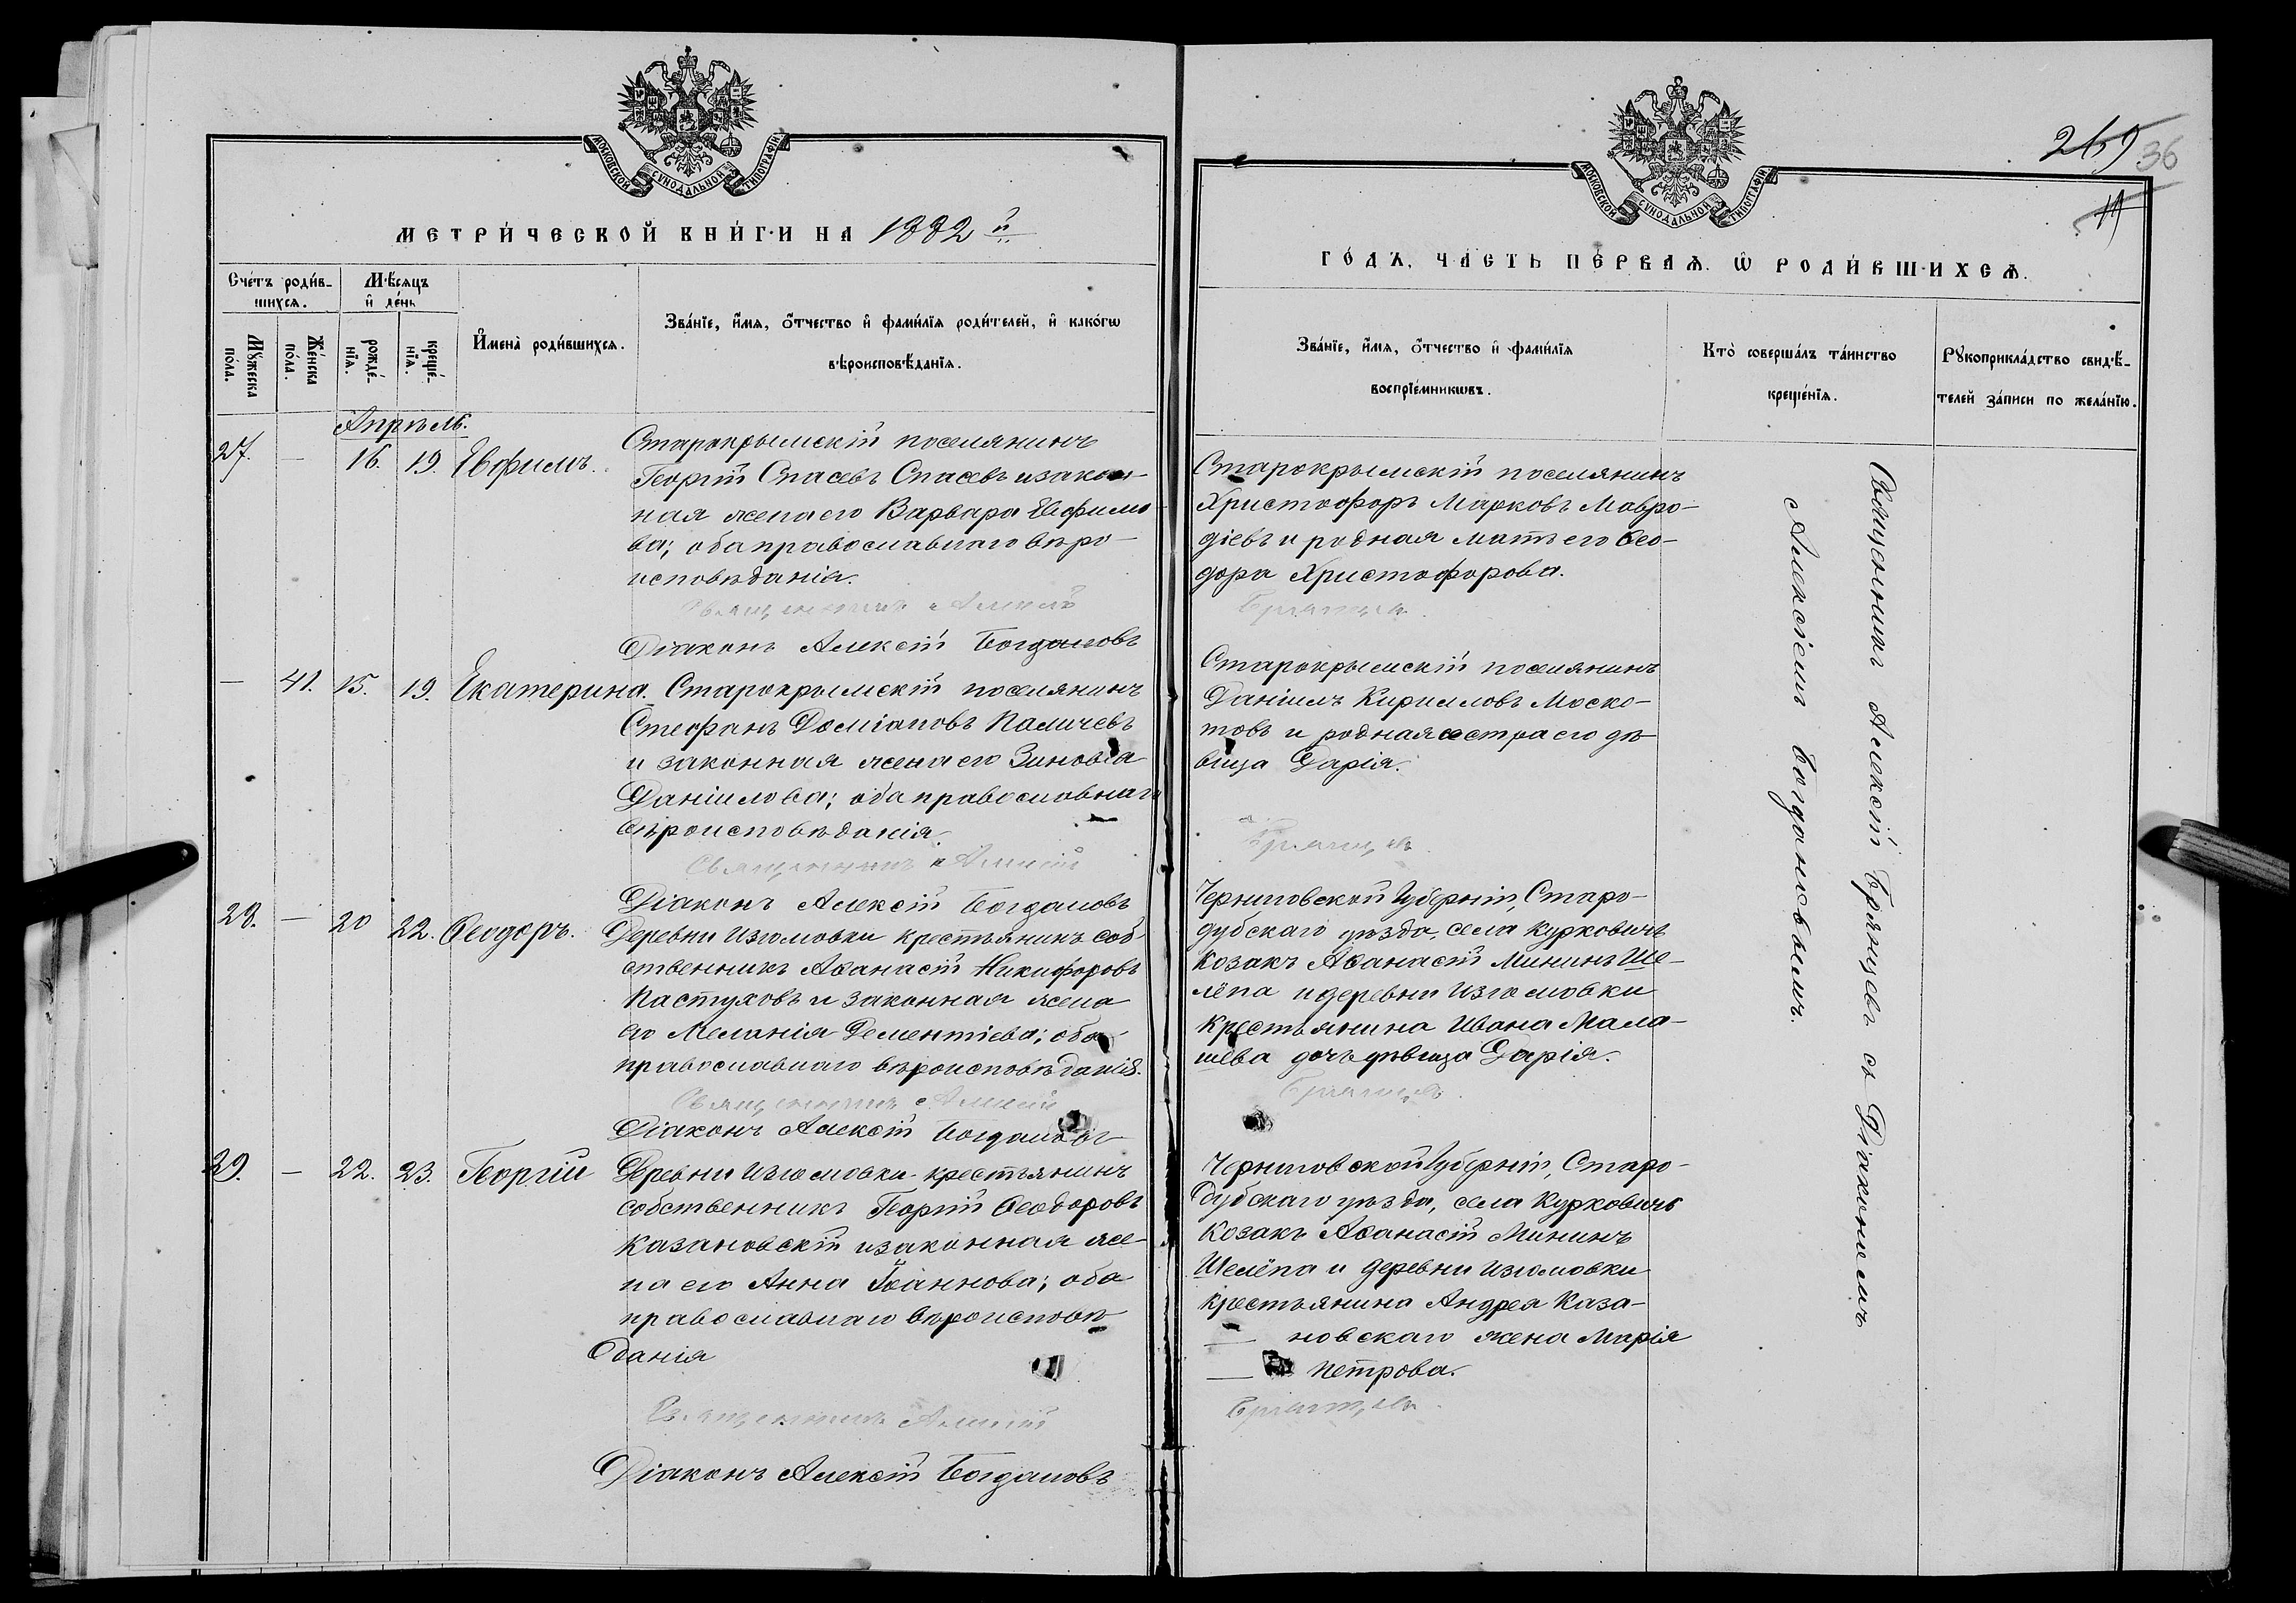 МОСКОВСКОЙ СѴНОДАЛЬНОЙ ТИПОГРАФІИ
МЕТРИ́ЧЕСКОЙ КНИ́ГИ НА 1882 й
Сче́тъ роди́в-
шихся.
Мꙋ́жеска
по́ла.
Же́нска
по́ла.
М҄ѣсяцъ
и҆ де́нь
рожде́-
нїя.
креще́-
нїя.
И҆мена̀ роди́вшихся.
Зва́нїе, и҆́мя, о҆́тчество и҆ фами́лїя роди́телей, и҆ како́гѡ
вѣроисповѣ́данїя.
Апрѣль.
27. — 16. 19. Евфимъ.
Старокрымскій поселянинъ
Георгій Спасевъ Спасевъ и закон-
ная жена его Варвара Евфимо
ва; оба православнаго вѣро-
исповѣданія.
Священникъ Алексій
Діаконъ Алексій Богдановъ
— 41. 15. 19. Екатерина.
Старокрымскій поселянинъ
Стефанъ Доміановъ Паличевъ
и законная жена его Зиновіа
Даніилова; оба православнаго
вѣроисповѣданія.
Священникъ Алексій
Діаконъ Алексій Богдановъ
28. — 20 22. Ѳеодоръ.
Деревни Изюмовки крестьянинъ соб-
ственникъ Аѳанасій Никифоровъ
Пастуховъ и законная жена
его Меланія Дементіева; оба
православнаго вѣроисповѣданія.
Священникъ Алексій
Діаконъ Алексій Богдановъ
29. — 22. 23. Георгій
Деревни Изюмовки крестьянинъ
собственникъ Георгій Ѳеодоровъ
Казановскій и законная же-
на его Анна Іоаннова; оба
православнаго вѣроисповѣ-
данія
Священникъ Алексій
Діаконъ Алексій Богдановъ
269 36
МОСКОВСКОЙ СѴНОДАЛЬНОЙ ТИПОГРАФІИ
ГО́ДЪ, ЧА́СТЬ ПЕ́РВАЯ. Ѽ РОДИ́ВШИХСЯ.
Зва́нїе, и҆́мя, о҆́тчество и҆ фами́лїя
воспрїе́мникѡвъ.
Кто̀ соверша́лъ та́инство
креще́нїя.
Рꙋкоприкла́дство свидѣ́-
телей за́писи по жела́нїю.
Старокрымскій поселянинъ
Христофоръ Марковъ Мавро-
діевъ и родная мать его Ѳео-
дора Христофорова.
Брянцевъ.
Старокрымскій поселянинъ
Даніилъ Кирилловъ Моско-
товъ и родная сестра его дѣ-
вица Дарія.
Брянцевъ.
Черниговской Губерніи, Старо-
дубскаго уѣзда, села Курковичъ
козакъ Аѳанасій Мининъ Ше-
лёпа и деревни Изюмовки
крестьянина Ивана Мала-
шева дочь дѣвица Дарія.
Брянцевъ.
Черниговской Губерніи, Старо-
дубскаго уѣзда, села Курковичъ
козакъ Аѳанасій Мининъ
Шелёпа и деревни Изюмовки
крестьянина Андрея Каза-
новскаго жена Марія
Петрова.
Брянцевъ.
Священникъ Алексій Брянцевъ съ Діакономъ
Алексіемъ Богдановымъ.